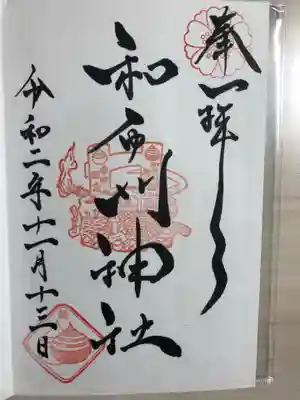 奉拝
和布刈神社
令和二年十一月十三日